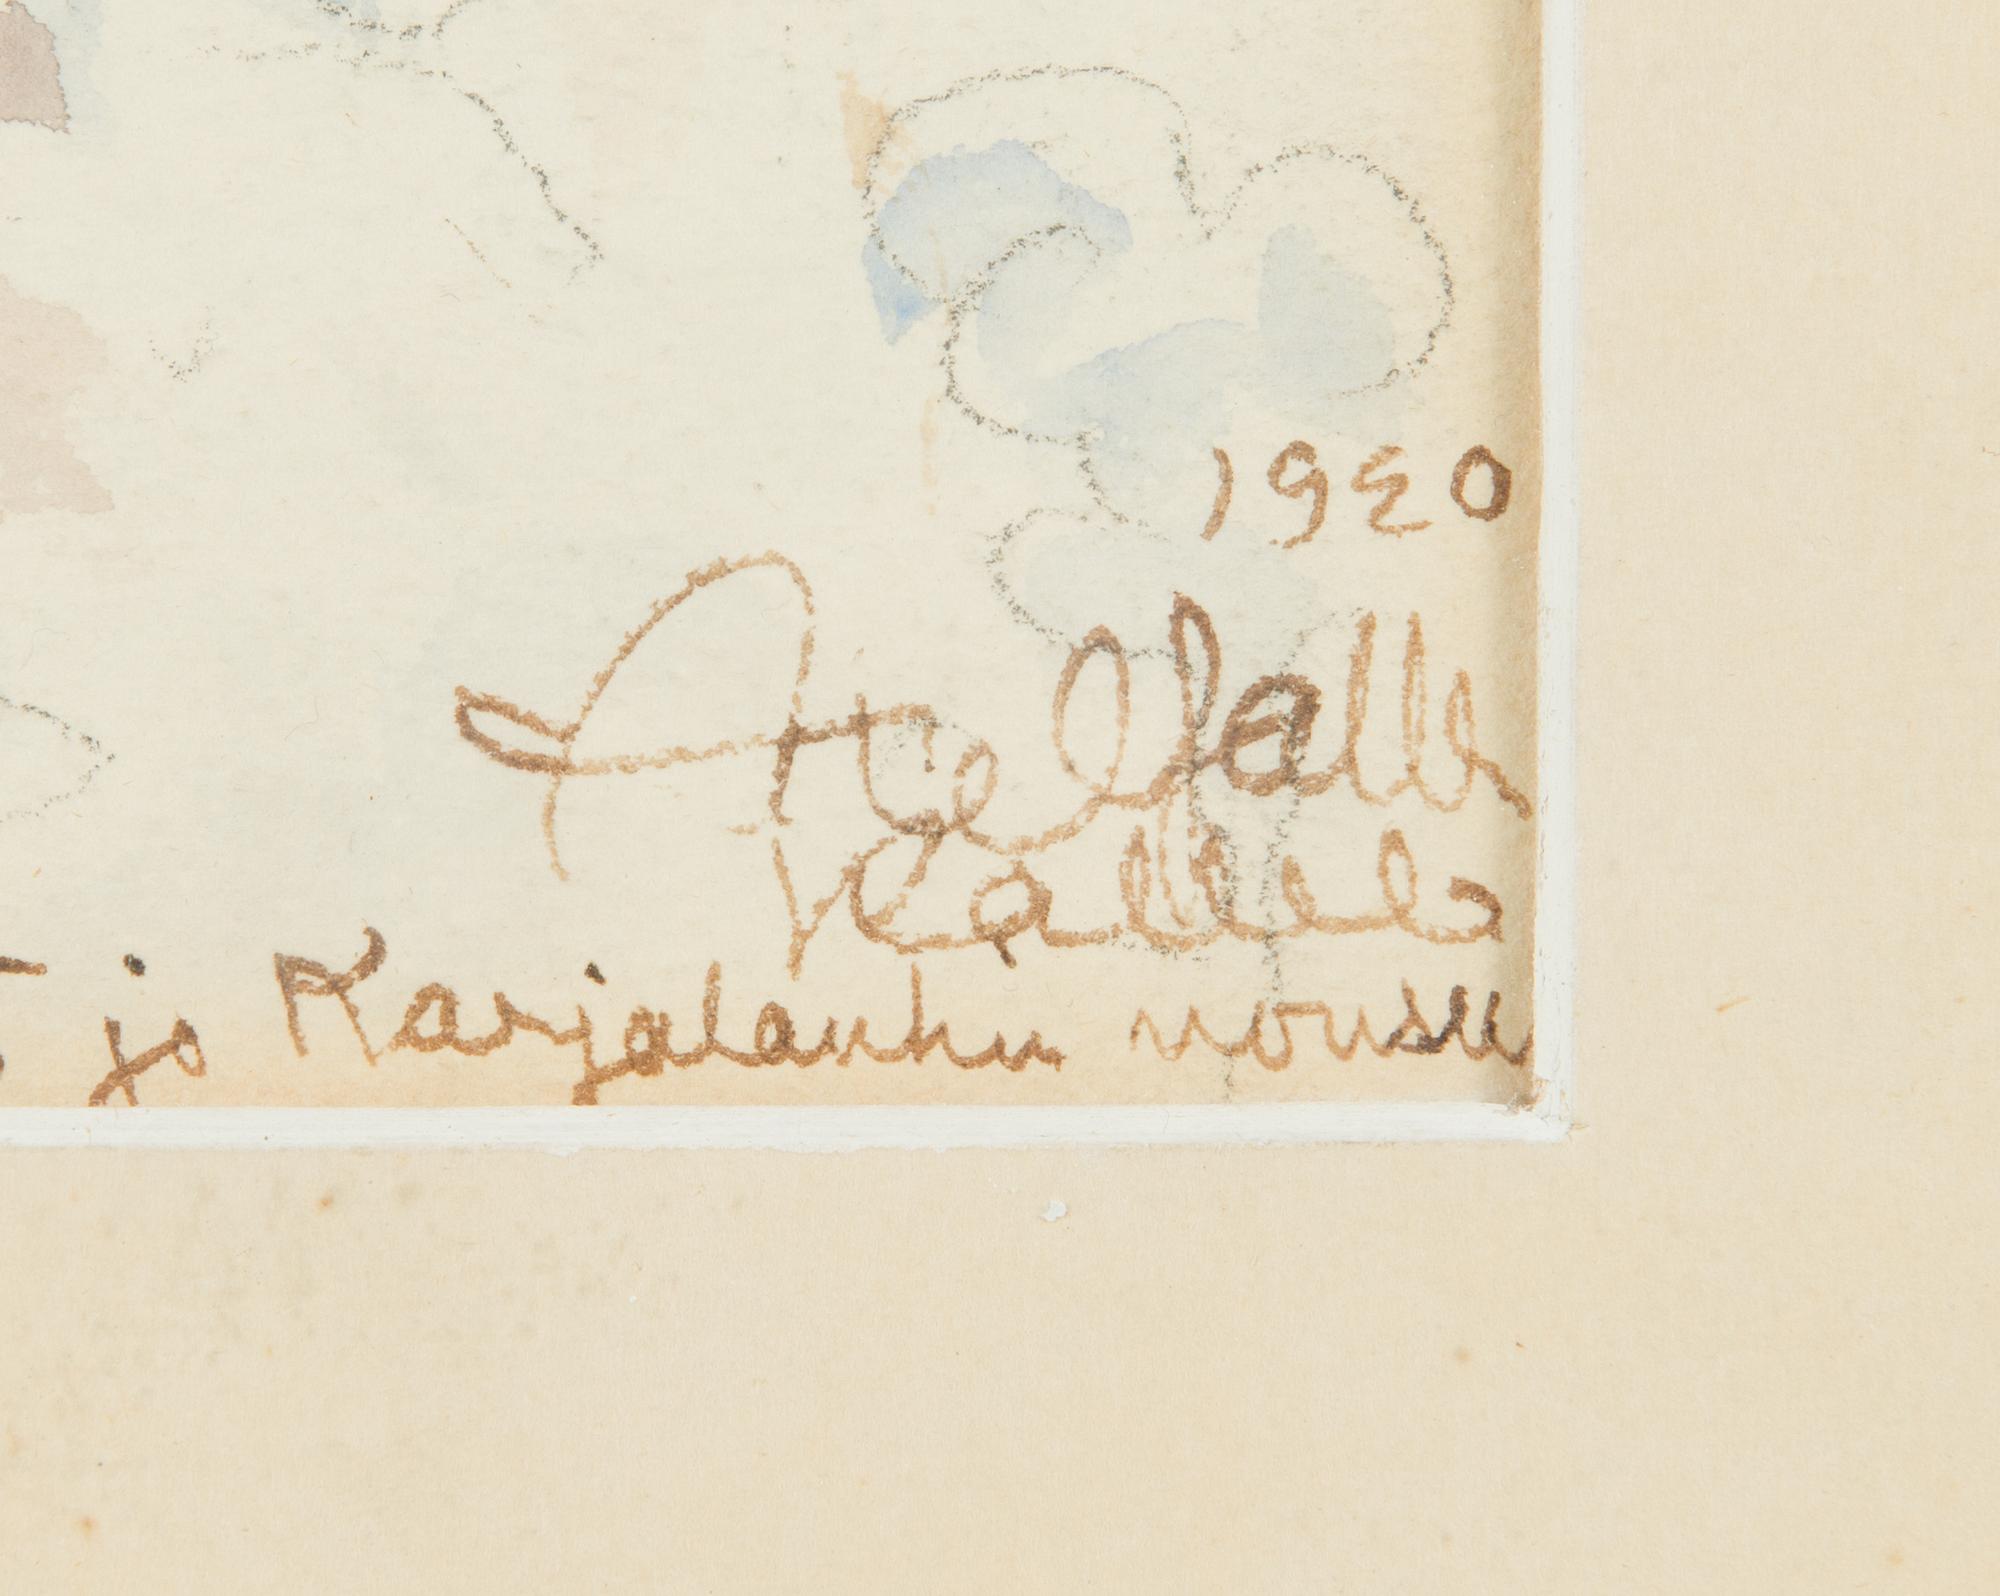 1920
Axel Gallen
Kallela
jo Karjalanhn nousu